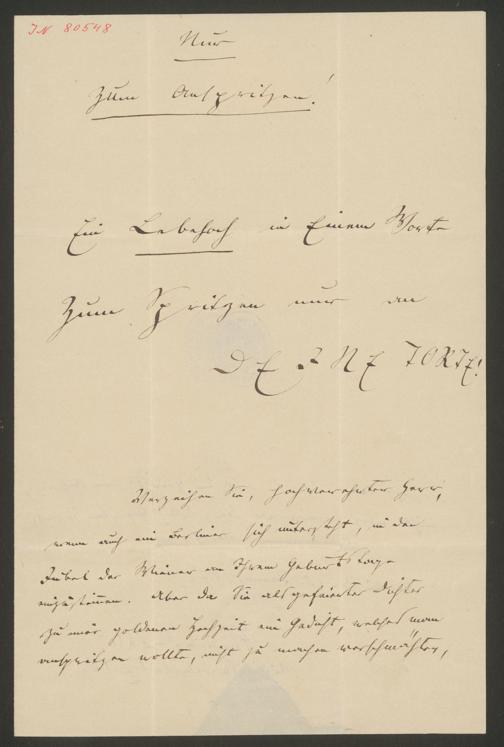 IN 80548
Nur
zum Anspritzen!
Ein Lebehoch in Einem Worte
Zum Spritzen nur an
DEINE TORTE!
Verzeihen Sie, hochverehrter Herr,
wenn auch ein Berliner sich untersteht, in den
Jubel der Wiener an Ihrem Geburtstage
einzustimmen. Aber da Sie als gefeierter Dichter
zu einer goldenen Hochzeit ein Gedicht, welches man
anspritzen wollte, nicht zu machen verschmähten,